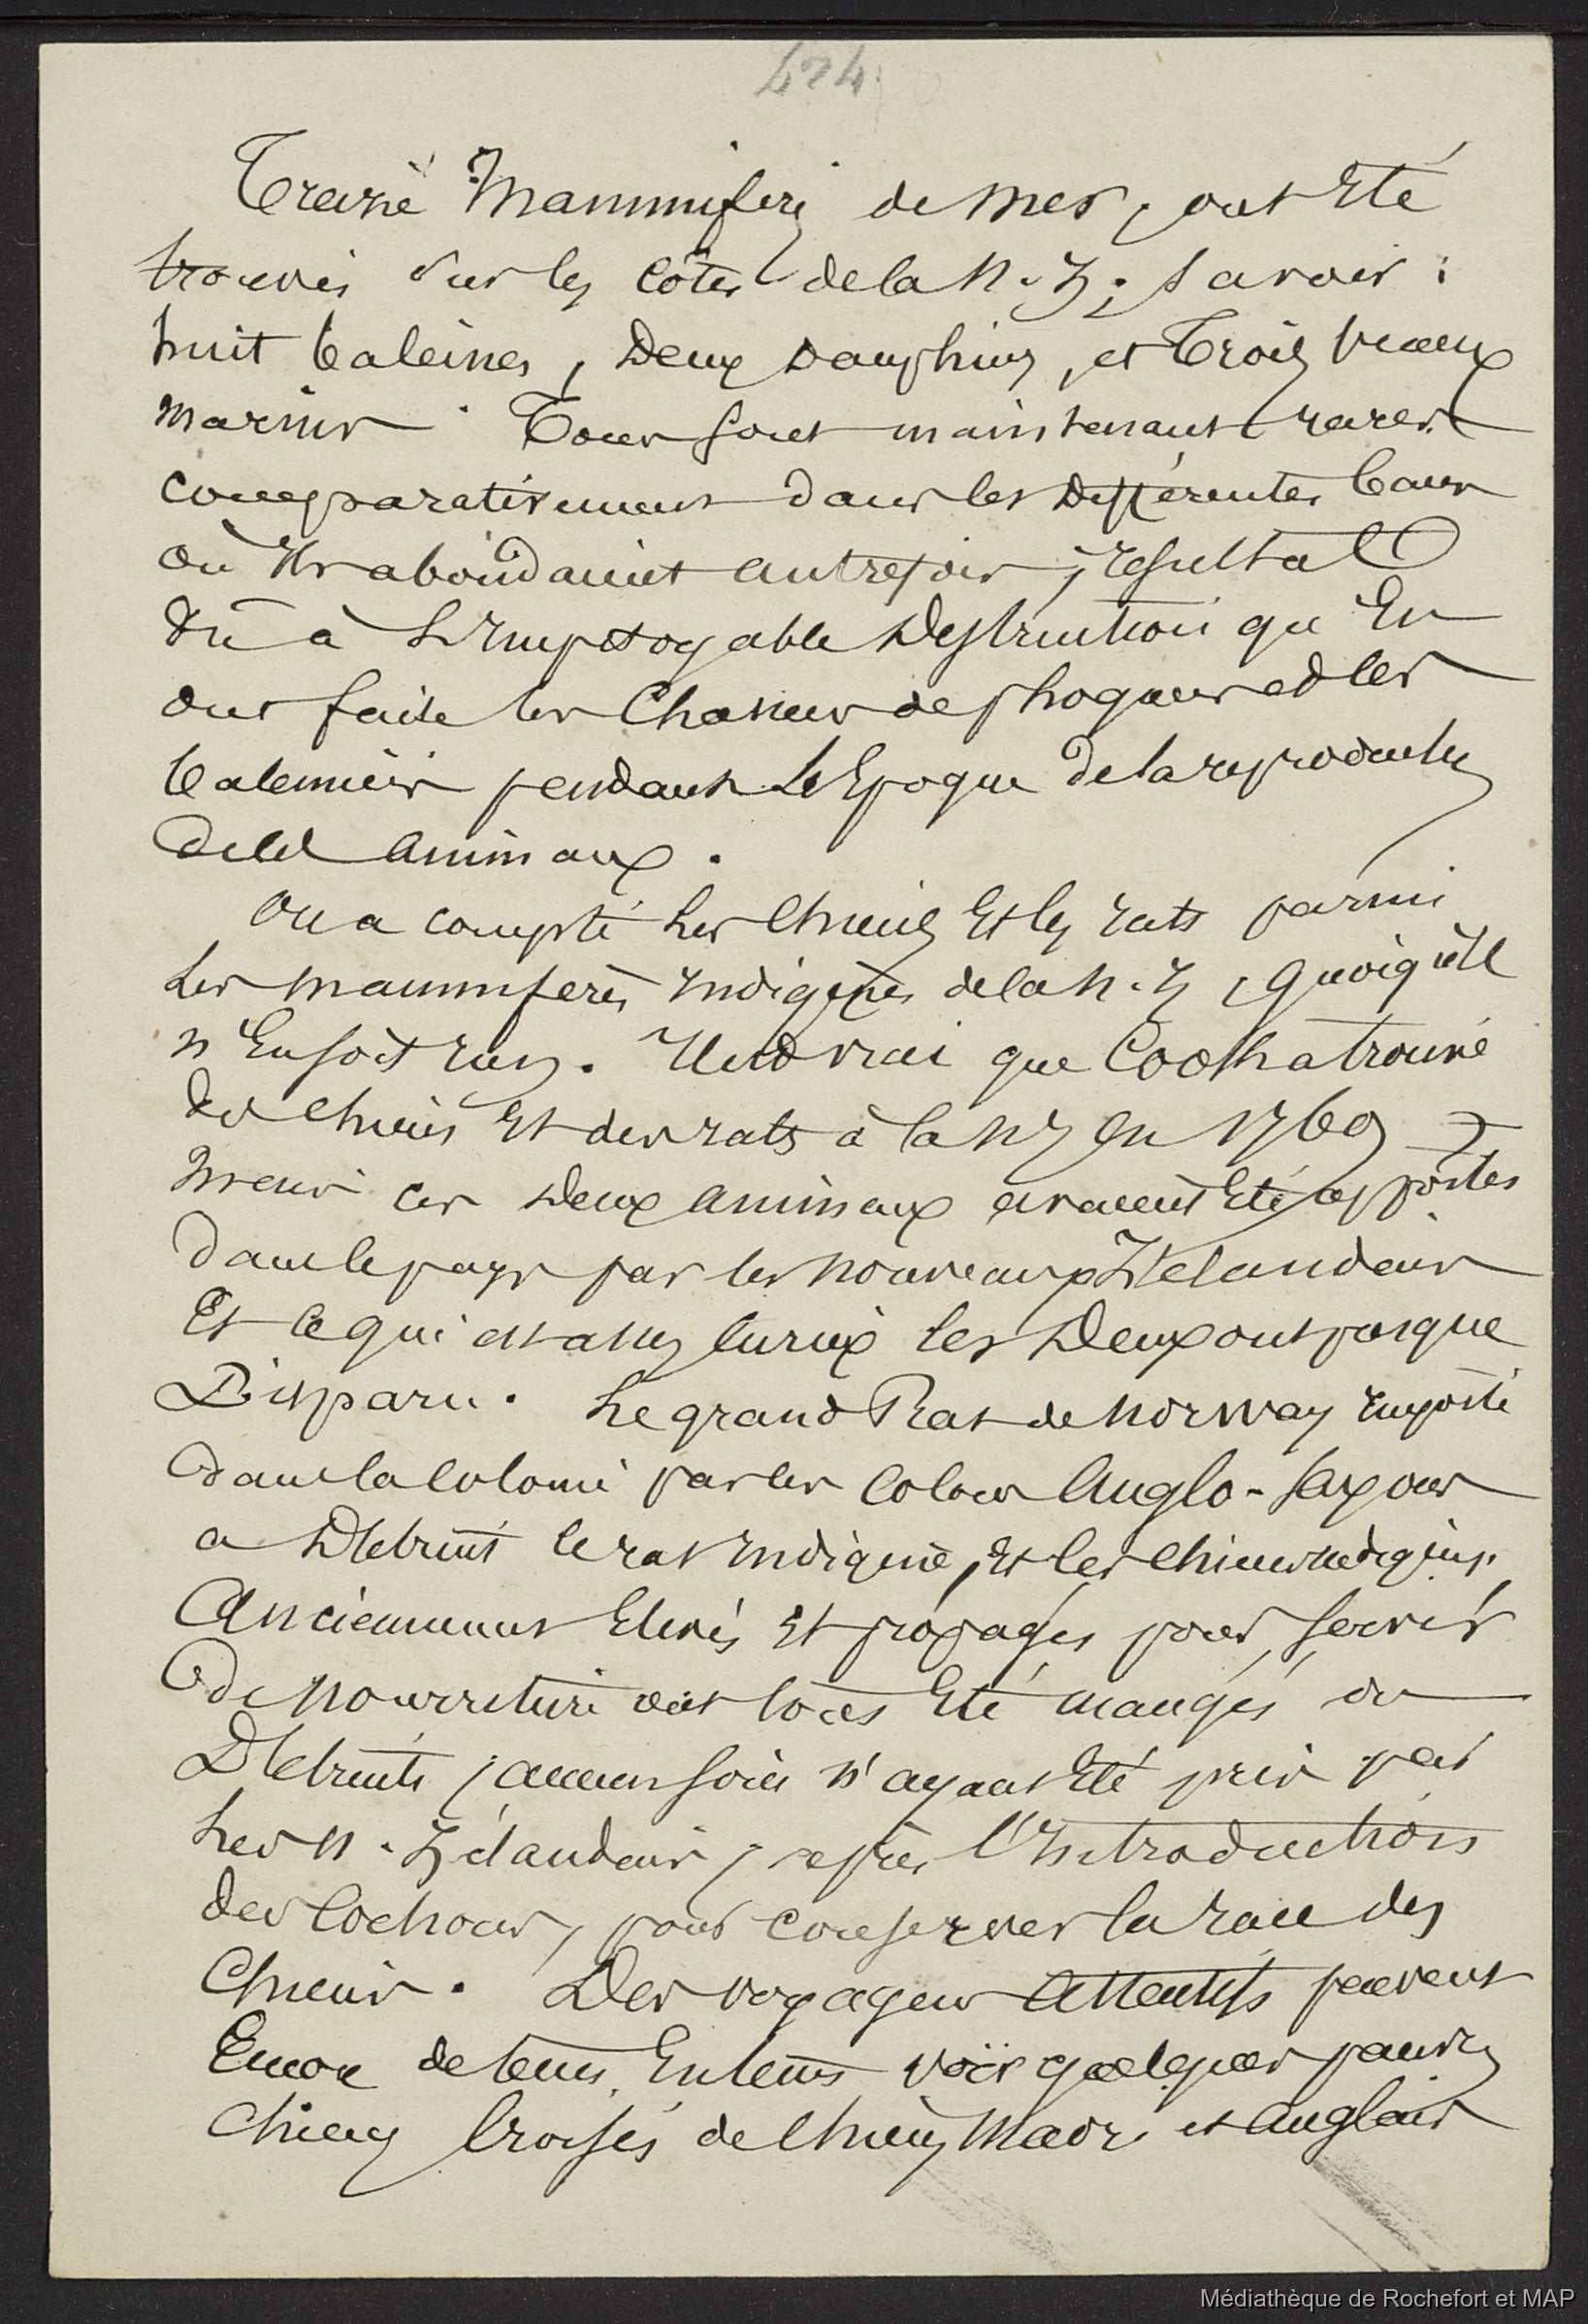 424
Treize Mammifères de mer, ont Eté
trouvés sur les Côtes de la N. Z; savoir :
huit baleines, Deux Dauphins, et Trois Veaux
marins. Tous sont maintenant rares
Comparativement dans les Différentes Eaux
où Ils abondaient autrefois; résultat
Dû à L'Impitoyable Destruction qu'En
ont faite les Chasseurs de phoques et les
baleiniers pendant L'Epoque de la reproduction
de ces animaux.
On a compté Les Chiens Et les rats parmi
Les mammifères Indigènes de la N. Z, quoiqu'Il
n'En soit rien. Il est vrai que Cook a trouvé
des Chiens Et des rats à la N Z En 1769
mais ces Deux animaux avaient Eté apportés
Dans le pays par les Nouveaux Zélandais
Et Ce qui est assez curieux les Deux ont presque
Disparu. Le grand Rat de Norway Importé
dans la Colonie par les Colons Anglo-Saxons
a Détruit le rat Indigène, Et les Chiens Indigènes
Anciennement Elevés Et propagés pour servir
de Nourriture ont tous Eté mangés ou
Détruits, aucun soin n'ayant Eté pris par
Les N. Zélandais, après l'Introduction
des Cochons, pour conserver la race des
Chiens. Des voyageurs Attentifs peuvent
Encore de tems En tems voir quelques pauvres
Chiens Croisés de Chiens Maori et anglais
Médiathèque de Rochefort et MAP